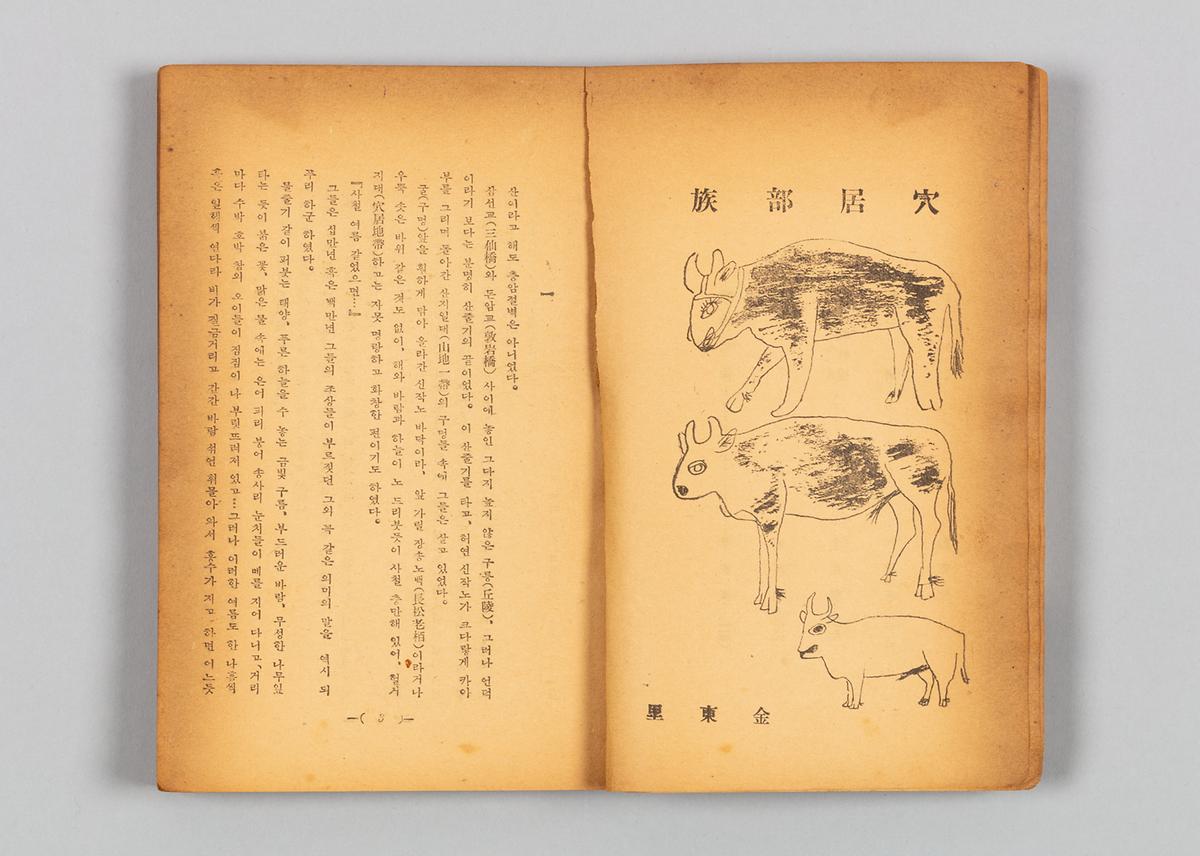 穴居部族
金東里
一
산이라고 해도 층암절벽은 아니었다。
삼선교(三仙橋)와 돈암교(敦岩橋) 사이에 놓인 그다지 높지 않은 구릉(丘陵), 그러나 언덕
이라기 보다는 분명히 산줄기의 끝이었다。 이 산줄기를 타고, 허연 신작노가 크다랗게 카아
부를 그리며 돌아간 산지일대(山地一帶)의 구멍들 속에 그들은 살고 있었다。
굴(구멍)앞을 훤하게 닦아 올라간 신작노 바닥이라, 앞 가릴 장송노백(長松老栢)이라거나
우뚝 솟은 바위 같은 것도 없이, 해와 바람과 하늘이 노 드리붓듯이 사철 충만해 있어, 혈거
지대(穴居地帶)하고는 자못 명랑하고 화창한 편이기도 하였다。
『사철 여름 같었으면…』
그들은 십만년 혹은 백만년 그들의 조상들이 부르짖던 그와 꼭 같은 의미의 말을 역시 되
푸리 하군 하였다。
물줄기 같이 퍼붓는 태양, 푸른 하늘을 수 놓는 금빛 구름, 부드러운 바람, 무성한 나무잎
타는 듯이 붉은 꽃, 맑은 물 속에는 은어 피리 붕어 송사리 눈치들이 떼를 지어 다니고, 거리
마다 수박 호박 참외 오이들이 짐짐이 나 부릿뜨려저 있고…그러나 이러한 여름도 한 나흘씩
혹은 일헤씩 연다라 비가 질금거리고 간간 바람 섞언 휘몰아 와서 홍수가 지고 하면 어느듯
—( 3 )—